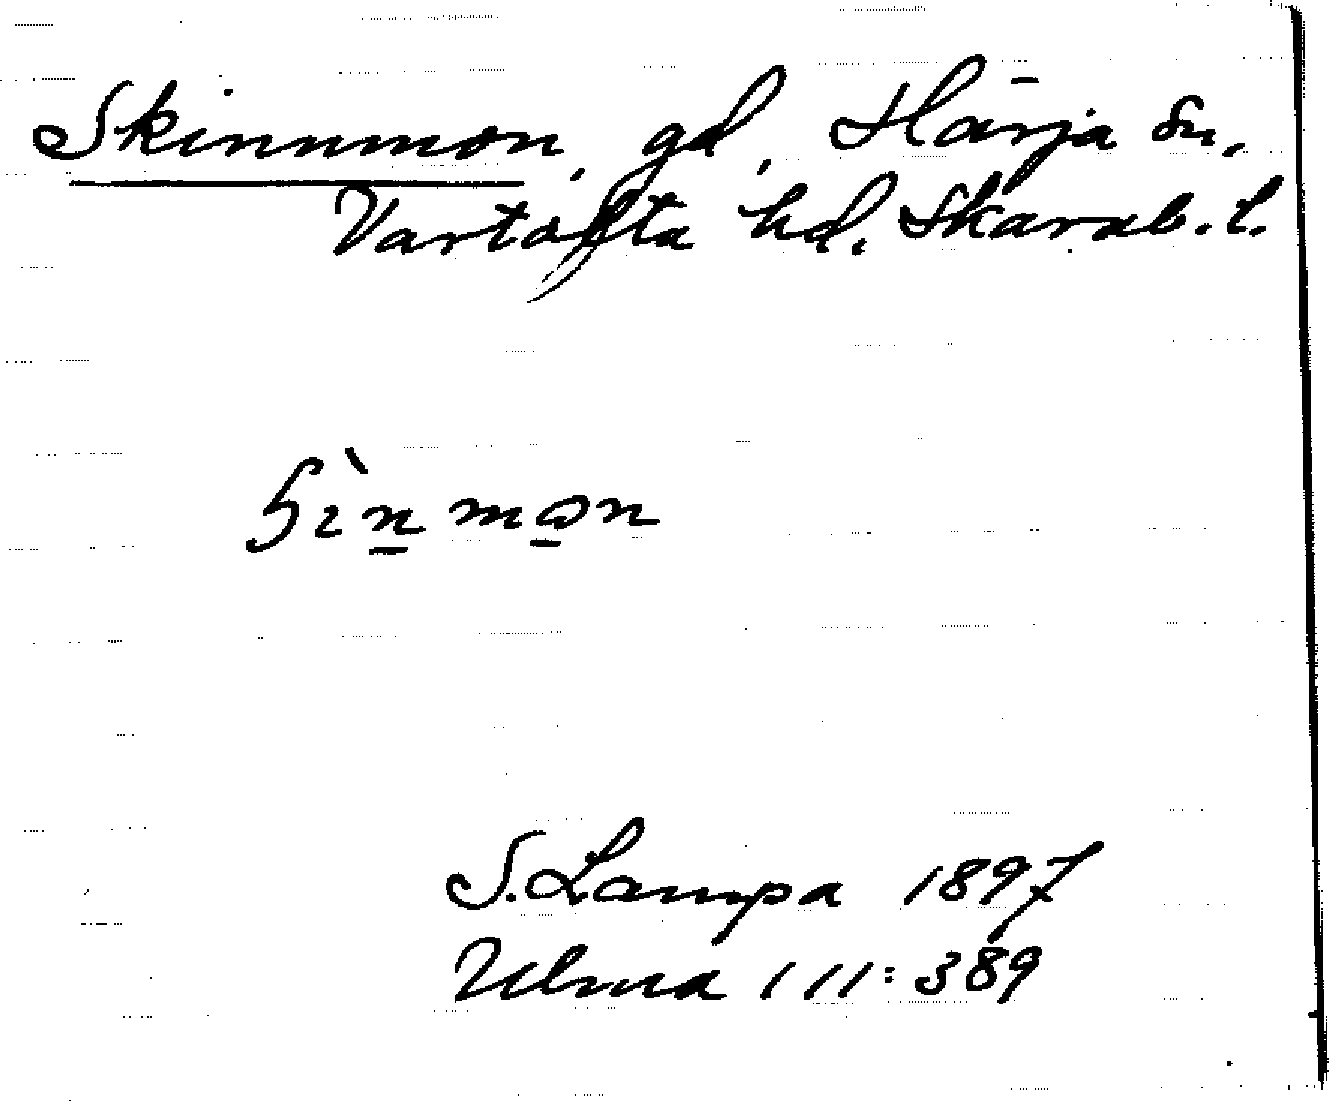 Skinnmon, gd, Härja sn,
Vartofta hd. Skarab. l.
S. Lampa 1897
Ulma 111:389